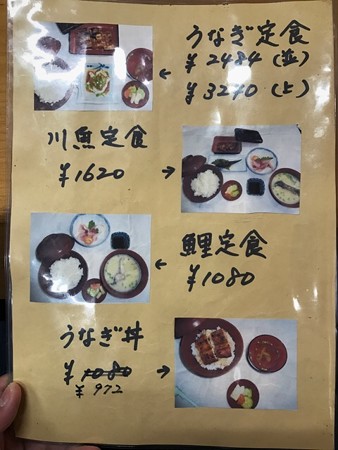 うなぎ定食
¥2484(並)
¥3240(上)
川魚定食
¥1620
鯉定食
¥1080
うなぎ丼
¥1080
¥972